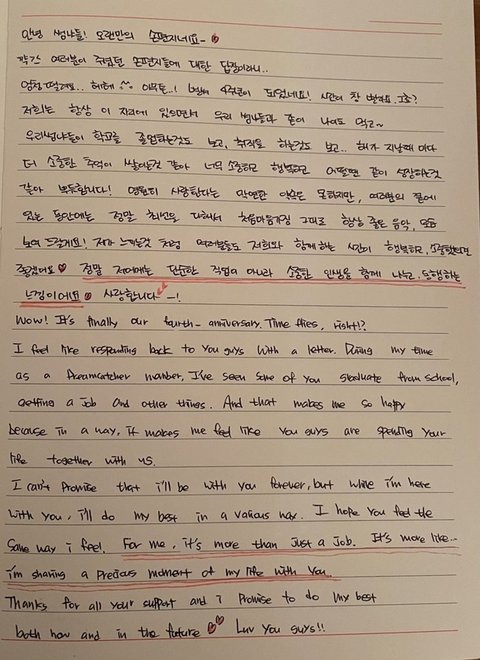 안녕 썸냐들! 오랜만의 손편지네요~
각각 여러분이 주셨던 손편지들에 대한 답장이라니..
엄청 떨려요.. 헤헤 ^^ 아무튼..! 벌써 4주년이 되었네요! 시간이 참 빨라요. 그쵸?
저희는 항상 이 자리에 있으면서 우리 썸냐들과 같이 나이도 먹고~
우리썸냐들이 학교를 졸업하는것도 보고, 취직도 하는것도 보고.. 해가 지날때 마다
더 소중한 추억이 쌓이는것 같아 너무 소중하고 행복하고 어쩌면 같이 성장하는것
같아 뿌듯합니다! 영원히 사랑한다는 막연한 약속은 못하지만, 여러분의 곁에
있는 동안에는 정말 최선을 다해서 처음마음가짐 그대로 항상 좋은 음악, 모습
보여 드릴게요! 제가 느끼는것 처럼 여러분들도 저희와 함께 하는 시간이 행복하고, 소중했으면
좋겠어요 정말 저에게는 단순한 직업이 아니라 소중한 인생을 함께 나누고, 동행하는
느낌이에요 사랑합니다 -!
Wow! It's finally our fourth-anniversary. Time flies, right!?
I feel like responding back to you guys with a letter. During my time
as a Dreamcatcher member, I've seen some of you graduate from school,
getting a job and other things. And that makes me so happy
because in a way, it makes me feel like you guys are spending your
life together with us.
I can't promise that i'll be with you forever, but while i'm here
with you, i'll do my best in a various way. I hope you feel the
same way i feel. For me, it's more than just a job. It's more like...
i'm sharing a precious moment of my life with you..
Thanks for all your support and i promise to do my best
both now and in the future Luv you guys!!